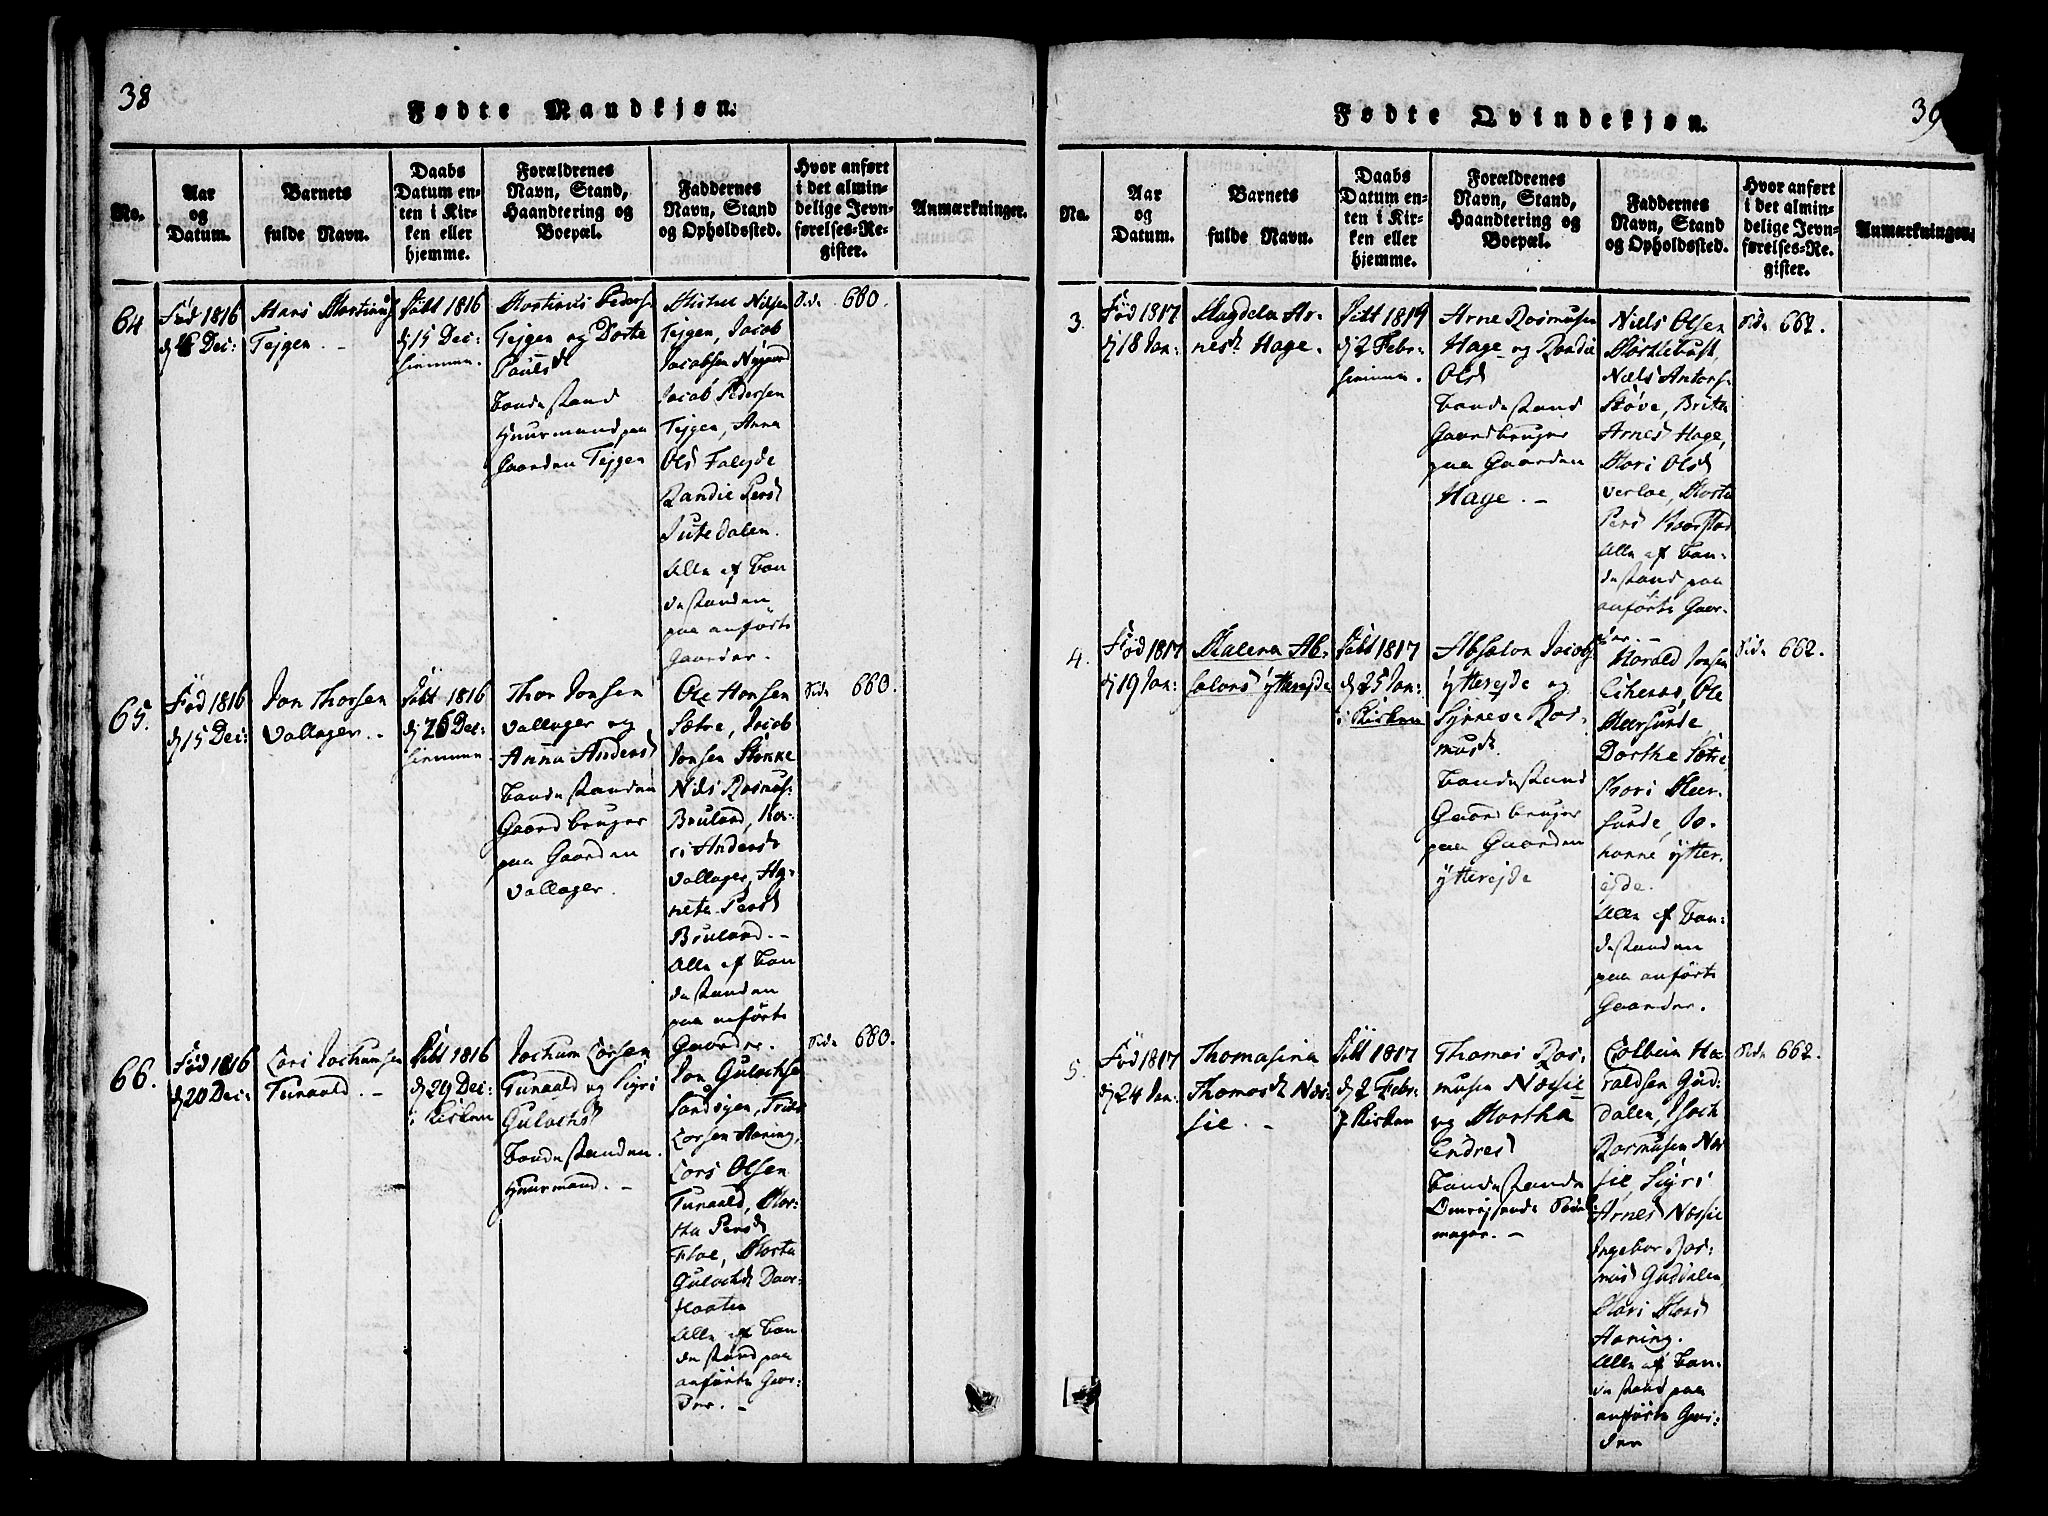 38
Fødte Mandkjøn.
No.
Aar
og
Datum.
Barnets
fulde Navn.
Daabs
Datum en-
ten i Kir-
ken eller
hjemme.
Forældrenes
Navn, Stand,
Haandtering og
Boepæl.
Faddernes
Navn, Stand
og Opholdssted.
Hvor anført
i det almin-
delige Jevn-
førelses-Re-
gister.
Anmærkninger.
64
Fød 1816
Dec:
Hans
Tejgen. -
Døbt 1816
d 15 Dec:
hiemme.
Mortinus Pederse
Tejgen og Dorte
Paulsd
Bondestand
Huusmand paa
Gaarden Tejgen
Nilsen
Tejgen, Jacob
Jacobsen Nygaard
Jacob Pedersen
Tejgen, Anna
Olsd Falejde
Randie Persd
Jutedalen.
Alle af Bon
destanden
paa anførte
Gaarder.
Side 680.
65.
Fød 1816
d 15 Dec:
Jon Thorsen
Vallager. -
Døbt 1816
d 26 Dec:
hiemme
Thor Jonsen
Vallager og
Anna Andersd
Bondestanden
Gaardbruger
paa Gaarden
Vallager.
Ole Hansen
Sætre, Jacob
Jonsen
Nils Rasmus-
Bruland, Ka-
ri Andersd
Vallager, Ag-
neta Persd
Bruland. -
Alle af Bon
destanden
paa anførte
Gaarder.
Side 680.
66.
Fød 1816
d 20 Dec:
Lars Jochumsen
Tunaald. -
Døbt 1816
d 29 Dec:
i Kirken
Jochum Larsen
Tunaald og Sigri
Gulachsd
Bondestanden.
Huusmand. -
Jon Gulachse
Sandvigen,
Larsen Haning,
Lars Olsen
Tunaald, Mar-
tha Persd
Floe, Marta
Gulachsd
Alle af Bon
destand paa
anførte Gaar-
der. -
Side 680.
39
Fødte Qvindekjøn.
No.
Aar
og
Datum.
Barnets
fulde Navn.
Daabs
Datum en-
ten i Kir-
ken eller
hjemme.
Forældrenes
Navn, Stand,
Haandtering og
Boepæl.
Faddernes
Navn, Stand
og Opholdssted.
Hvor anført
i det almin-
delige Jevn-
førelses-Re-
gister.
Anmærkninger.
3.
Fød 1817
d 18 Jan:
Magdela Ar-
nesd Hage.
Døbt 1817
d 2 Febr:
hiemme.
Arne Rasmusen
Hage og Randie
Olsd
Bondestand
Gaardbruger
paa Gaarden
Hage. -
Niels Olsen
Myklebust
Niels Antons
Støve, Brita
Arnesd Hage,
Mari Olsd
Verloe, Marta
Persd
Alle af Bon-
destand paa
anførte Gaar-
der. -
Side 662.
4.
Fød 1817
d 19 Jan:
Malena Ab-
salonsd Ytterejde
Døbt 1817
d 25 Jan:
i Kirken
Absalon Jacobs
Ytterejde og
Synneva Ras-
musd.
Bondestand
Gaardbruger
paa Gaarden
Ytterejde
Harald Jonsen
Ole
Meersunde
Dorthe Sætre,
Kari Meer-
sunde, Jo-
hanne Ytter-
ejde.
Alle af Bon-
destanden
paa anførte
Gaarder.
Side 662.
5.
Fød 1817
d 24 Jan:
Thomasina
Thomasd Næs-
sie. -
Døbt 1817
d 2 Febr:
i Kirken
Thomas Ras-
musen Næssie
og Martha
Endresd
Bondestand
Omrejsende
mager. -
Colbein Ha-
raldsen Gud-
dalen, Isach
Rasmusen Næs
sie, Sigri
Arnesd Næssie
Ingebor Ras-
musd Guddalen,
Mari Marsd
Haning.
Alle af Bon-
destand paa
anførte Gaar-
der
Side 662.